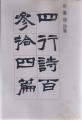 四行詩百
參拾四篇